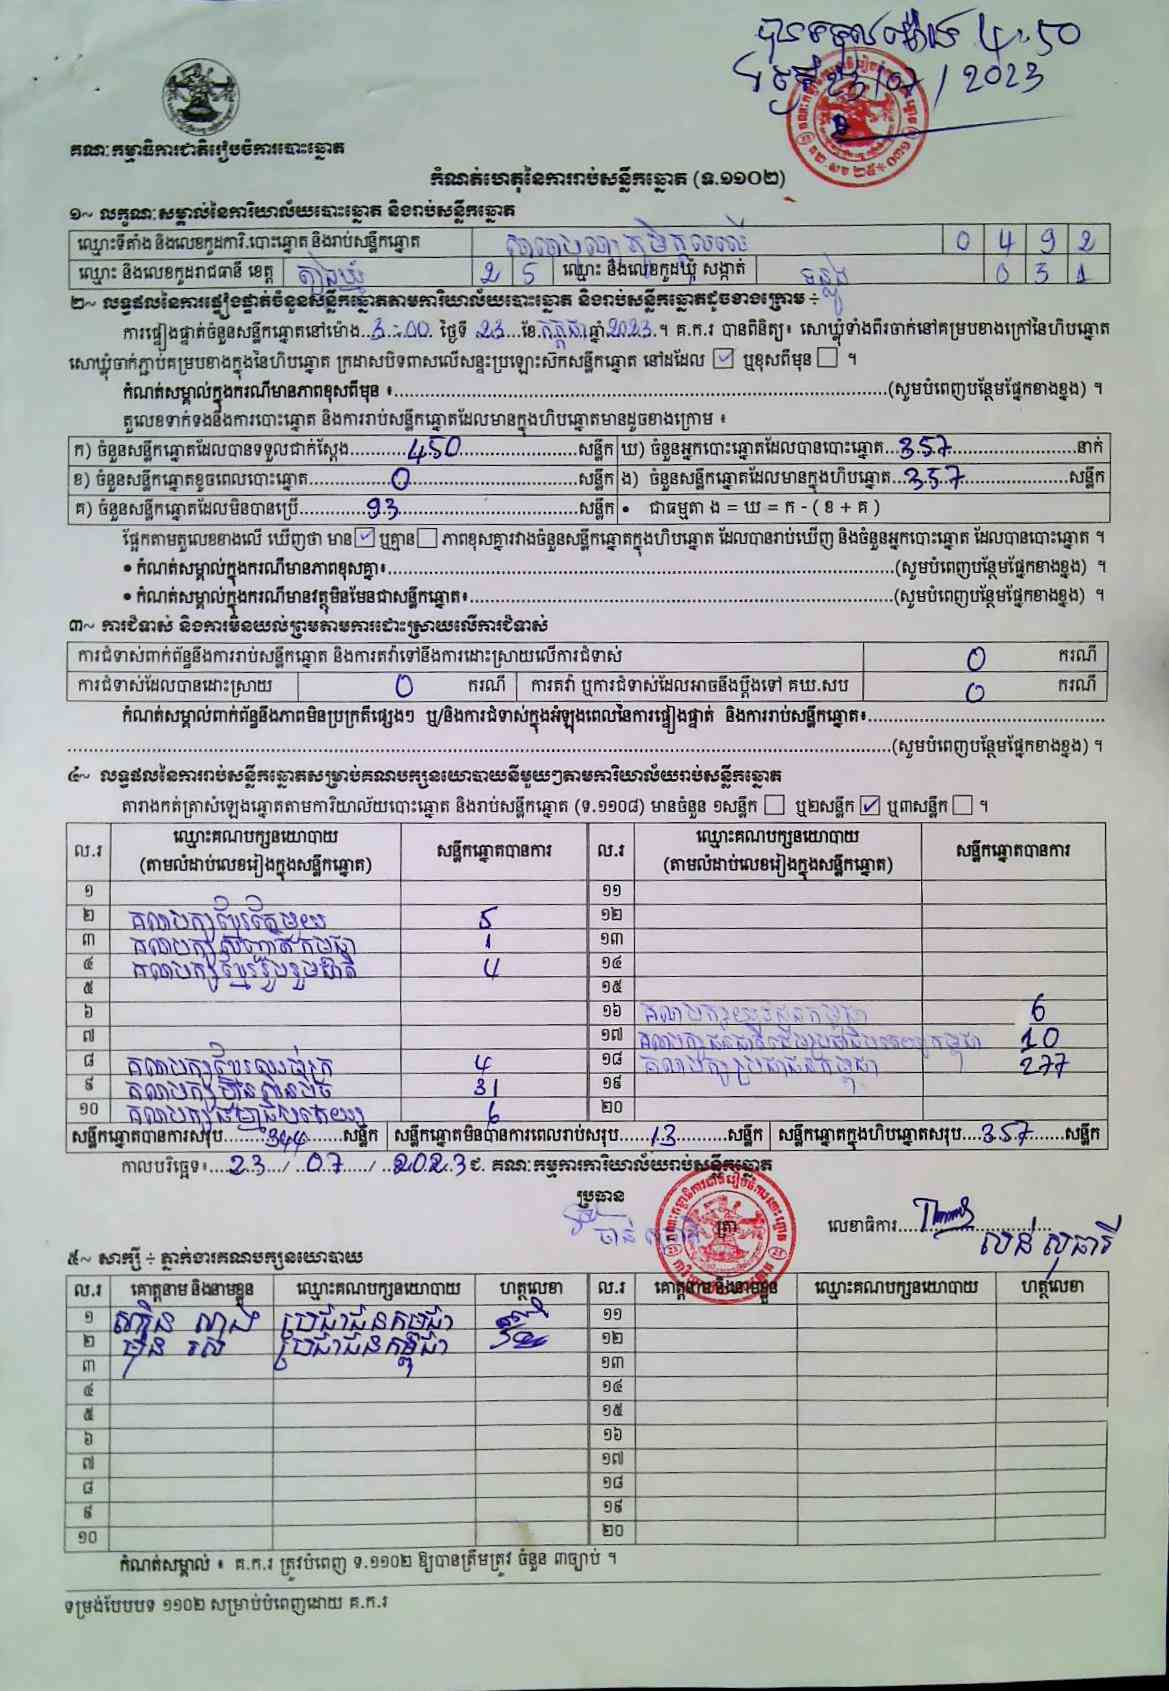 4:50
23/07/2023
គណៈកម្មាធិការជាតិរៀបចំការបោះឆ្នោត
កំណត់ហេតុនៃការរាប់សន្លឹកឆ្នោត (ទ.១១០២)
១~ លក្ខណៈសម្គាល់នៃការិយាល័យបោះឆ្នោត និងរាប់សន្លឹកឆ្នោត
ឈ្មោះទីតាំង និងលេខកូដការិ.បោះឆ្នោត និងរាប់សន្លឹកឆ្នោត 0 4 9 2
ឈ្មោះ និងលេខកូដរាជធានី ខេត្ត ត្បូងឃ្មុំ 2 5 ឈ្មោះ និងលេខកូដឃុំ សង្កាត់ ទន្លូង 0 3 1
២~ លទ្ធផលនៃការផ្ទៀងផ្ទាត់ចំនួនសន្លឹកឆ្នោតតាមការិយាល័យបោះឆ្នោត និងរាប់សន្លឹកឆ្នោតដូចខាងក្រោម ÷
ការផ្ទៀងផ្ទាត់ចំនួនសន្លឹកឆ្នោតនៅម៉ោង 3:00 ថ្ងៃទី 23 ខែ កក្កដា ឆ្នាំ 2023 ។ គ.ក.រ បានពិនិត្យ៖ សោឃ្លុំទាំងពីរចាក់នៅគម្របខាងក្រៅនៃហិបឆ្នោត
សោឃ្លុំចាក់ភ្ជាប់គម្របខាងក្នុងនៃហិបឆ្នោត ក្រដាសបិទពាសលើសន្ទះប្រឡោះស៊កសន្លឹកឆ្នោត នៅដដែល ☑ ឬខុសពីមុន ☐ ។
កំណត់សម្គាល់ក្នុងករណីមានភាពខុសពីមុន ៖ (សូមបំពេញបន្ថែមផ្នែកខាងខ្នង) ។
តួលេខទាក់ទងនឹងការបោះឆ្នោត និងការរាប់សន្លឹកឆ្នោតដែលមានក្នុងហិបឆ្នោតមានដូចខាងក្រោម ៖
ក) ចំនួនសន្លឹកឆ្នោតដែលបានទទួលជាក់ស្តែង 450 សន្លឹក ឃ) ចំនួនអ្នកបោះឆ្នោតដែលបានបោះឆ្នោត 357 នាក់
ខ) ចំនួនសន្លឹកឆ្នោតខូចពេលបោះឆ្នោត 0 សន្លឹក ង) ចំនួនសន្លឹកឆ្នោតដែលមានក្នុងហិបឆ្នោត 357 សន្លឹក
គ) ចំនួនសន្លឹកឆ្នោតដែលមិនបានប្រើ 93 សន្លឹក • ជាធម្មតា ង = ឃ = ក - ( ខ + គ )
ផ្អែកតាមតួលេខខាងលើ ឃើញថា មាន ☑ ឬគ្មាន ☐ ភាពខុសគ្នារវាងចំនួនសន្លឹកឆ្នោតក្នុងហិបឆ្នោត ដែលបានរាប់ឃើញ និងចំនួនអ្នកបោះឆ្នោត ដែលបានបោះឆ្នោត ។
• កំណត់សម្គាល់ក្នុងករណីមានភាពខុសគ្នា៖ (សូមបំពេញបន្ថែមផ្នែកខាងខ្នង) ។
• កំណត់សម្គាល់ក្នុងករណីមានវត្ថុមិនមែនជាសន្លឹកឆ្នោត៖ (សូមបំពេញបន្ថែមផ្នែកខាងខ្នង) ។
៣~ ការជំទាស់ និងការមិនយល់ព្រមតាមការដោះស្រាយលើការជំទាស់
ការជំទាស់ពាក់ព័ន្ធនឹងការរាប់សន្លឹកឆ្នោត និងការតវ៉ាទៅនឹងការដោះស្រាយលើការជំទាស់ 0 ករណី
ការជំទាស់ដែលបានដោះស្រាយ 0 ករណី ការតវ៉ា ឬការជំទាស់ដែលអាចនឹងប្តឹងទៅ គឃ.សប 0 ករណី
កំណត់សម្គាល់ពាក់ព័ន្ធនឹងភាពមិនប្រក្រតីផ្សេងៗ ឬ/និងការជំទាស់ក្នុងអំឡុងពេលនៃការផ្ទៀងផ្ទាត់ និងការរាប់សន្លឹកឆ្នោត៖
(សូមបំពេញបន្ថែមផ្នែកខាងខ្នង) ។
៤~ លទ្ធផលនៃការរាប់សន្លឹកឆ្នោតសម្រាប់គណបក្សនយោបាយនីមួយៗតាមការិយាល័យរាប់សន្លឹកឆ្នោត
តារាងកត់ត្រាសំឡេងឆ្នោតតាមការិយាល័យបោះឆ្នោត និងរាប់សន្លឹកឆ្នោត (ទ.១១០៨) មានចំនួន ១សន្លឹក ☐ ឬ២សន្លឹក ☑ ឬ៣សន្លឹក ☐ ។
ល.រ ឈ្មោះគណបក្សនយោបាយ (តាមលំដាប់លេខរៀងក្នុងសន្លឹកឆ្នោត) សន្លឹកឆ្នោតបានការ ល.រ ឈ្មោះគណបក្សនយោបាយ (តាមលំដាប់លេខរៀងក្នុងសន្លឹកឆ្នោត) សន្លឹកឆ្នោតបានការ
១ ១១
២ គណបក្សខ្មែរតែមួយ 5 ១២
៣ គណបក្សសញ្ជាតិកម្ពុជា 1 ១៣
៤ គណបក្សខ្មែររួបរួមជាតិ 4 ១៤
៥ ១៥
៦ ១៦ គណបក្សយុវជនកម្ពុជា 6
៧ ១៧ 10
៨ គណបក្ស 4 ១៨ គណបក្សប្រជាជនកម្ពុជា 277
៩ គណបក្ស 31 ១៩
១០ គណបក្សធម្មាធិបតេយ្យ 6 ២០
សន្លឹកឆ្នោតបានការសរុប 344 សន្លឹក សន្លឹកឆ្នោតមិនបានការពេលរាប់សរុប 13 សន្លឹក សន្លឹកឆ្នោតក្នុងហិបឆ្នោតសរុប 357 សន្លឹក
កាលបរិច្ឆេទ៖ 23 / 07 / 2023 ជ. គណៈកម្មការការិយាល័យរាប់សន្លឹកឆ្នោត
ប្រធាន
ត្រា លេខាធិការ
៥~ សាក្សី ÷ ភ្នាក់ងារគណបក្សនយោបាយ
ល.រ គោត្តនាម និងនាមខ្លួន ឈ្មោះគណបក្សនយោបាយ ហត្ថលេខា ល.រ គោត្តនាម និងនាមខ្លួន ឈ្មោះគណបក្សនយោបាយ ហត្ថលេខា
១ ប្រជាជនកម្ពុជា ១១
២ ប្រជាជនកម្ពុជា ១២
៣ ១៣
៤ ១៤
៥ ១៥
៦ ១៦
៧ ១៧
៨ ១៨
៩ ១៩
១០ ២០
កំណត់សម្គាល់ ៖ គ.ក.រ ត្រូវបំពេញ ទ.១១០២ ឱ្យបានត្រឹមត្រូវ ចំនួន ៣ច្បាប់ ។
ទម្រង់បែបបទ ១១០២ សម្រាប់បំពេញដោយ គ.ក.រ